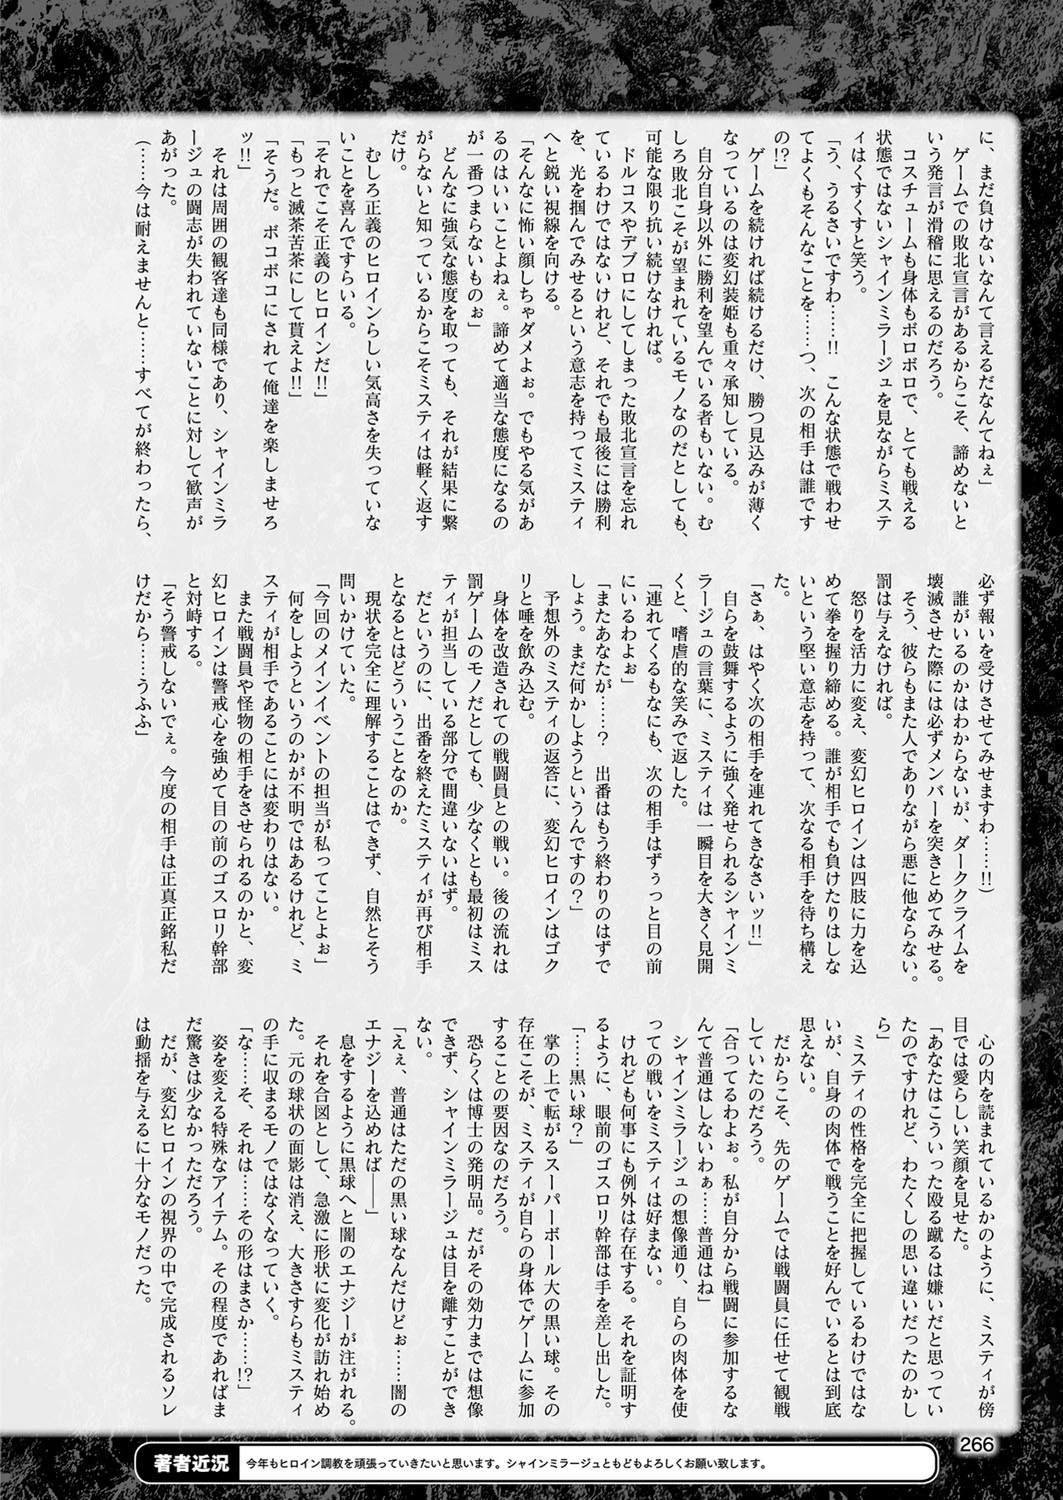 に、まだ負けないなんて言えるだなんてねぇ」
　ゲームでの敗北宣言があるからこそ、諦めないと
いう発言が滑稽に思えるのだろう。
　コスチュームも身体もボロボロで、とても戦える
状態ではないシャインミラージュを見ながらミステ
ィはくすくすと笑う。
「う、うるさいですわ……!!　こんな状態で戦わせ
てよくもそんなことを……つ、次の相手は誰です
の!?」
　ゲームを続ければ続けるだけ、勝つ見込みが薄く
なっているのは変幻装姫も重々承知している。
　自分自身以外に勝利を望んでいる者もいない。む
しろ敗北こそが望まれているモノなのだとしても、
可能な限り抗い続けなければ。
　ドルコスやデブロにしてしまった敗北宣言を忘れ
ているわけではないけれど、それでも最後には勝利
を、光を掴んでみせるという意志を持ってミスティ
へと鋭い視線を向ける。
「そんなに怖い顔しちゃダメよぉ。でもやる気があ
るのはいいことよねぇ。諦めて適当な態度になるの
が一番つまらないものぉ」
　どんなに強気な態度を取っても、それが結果に繋
がらないと知っているからこそミスティは軽く返す
だけ。
　むしろ正義のヒロインらしい気高さを失っていな
いことを喜んですらいる。
「それでこそ正義のヒロインだ!!」
「もっと滅茶苦茶にして貰えよ!!」
「そうだ。ボコボコにされて俺達を楽しませろ
ッ!!」
　それは周囲の観客達も同様であり、シャインミラ
ージュの闘志が失われていないことに対して歓声が
あがった。
（……今は耐えませんと……すべてが終わったら、
必ず報いを受けさせてみせますわ……!!）
　誰がいるのかはわからないが、ダーククライムを
壊滅させた際には必ずメンバーを突きとめてみせる。
　そう、彼らもまた人でありながら悪に他ならない。
罰は与えなければ。
　怒りを活力に変え、変幻ヒロインは四肢に力を込
めて拳を握り締める。誰が相手でも負けたりはしな
いという堅い意志を持って、次なる相手を待ち構え
た。
「さぁ、はやく次の相手を連れてきなさいッ!!」
　自らを鼓舞するように強く発せられるシャインミ
ラージュの言葉に、ミスティは一瞬目を大きく見開
くと、嗜虐的な笑みで返した。
「連れてくるもなにも、次の相手はずぅっと目の前
にいるわよぉ」
「またあなたが……?　出番はもう終わりのはずで
しょう。まだ何かしようというんですの？」
　予想外のミスティの返答に、変幻ヒロインはゴク
リと唾を飲み込む。
　身体を改造されての戦闘員との戦い。後の流れは
罰ゲームのモノだとしても、少なくとも最初はミス
ティが担当している部分で間違いないはず。
　だというのに、出番を終えたミスティが再び相手
となるとはどういうことなのか。
　現状を完全に理解することはできず、自然とそう
問いかけていた。
「今回のメインイベントの担当が私ってことよぉ」
　何をしようというのかが不明ではあるけれど、ミ
スティが相手であることには変わりはない。
　また戦闘員や怪物の相手をさせられるのかと、変
幻ヒロインは警戒心を強めて目の前のゴスロリ幹部
と対峙する。
「そう警戒しないでぇ。今度の相手は正真正銘私だ
けだから……うふふ」
　心の内を読まれているかのように、ミスティが傍
目では愛らしい笑顔を見せた。
「あなたはこういった殴る蹴るは嫌いだと思ってい
たのですけれど、わたくしの思い違いだったのかし
ら」
　ミスティの性格を完全に把握しているわけではな
いが、自身の肉体で戦うことを好んでいるとは到底
思えない。
　だからこそ、先のゲームでは戦闘員に任せて観戦
していたのだろう。
「合ってるわよぉ。私が自分から戦闘に参加するな
んて普通はしないわぁ……普通はね」
　シャインミラージュの想像通り、自らの肉体を使
っての戦いをミスティは好まない。
　けれども何事にも例外は存在する。それを証明す
るように、眼前のゴスロリ幹部は手を差し出した。
「……黒い球？」
　掌の上で転がるスーパーボール大の黒い球。その
存在こそが、ミスティが自らの身体でゲームに参加
することの要因なのだろう。
　恐らくは博士の発明品。だがその効力までは想像
できず、シャインミラージュは目を離すことができ
ない。
「えぇ、普通はただの黒い球なんだけどぉ……闇の
エナジーを込めれば――」
　息をするように黒球へと闇のエナジーが注がれる。
　それを合図として、急激に形状に変化が訪れ始め
た。元の球状の面影は消え、大きさすらもミスティ
の手に収まるモノではなくなっていく。
「な……そ、それは……その形はまさか……!?」
　姿を変える特殊なアイテム。その程度であればま
だ驚きは少なかっただろう。
　だが、変幻ヒロインの視界の中で完成されるソレ
は動揺を与えるに十分なモノだった。
266
著者近況
今年もヒロイン調教を頑張っていきたいと思います。シャインミラージュともどもよろしくお願い致します。